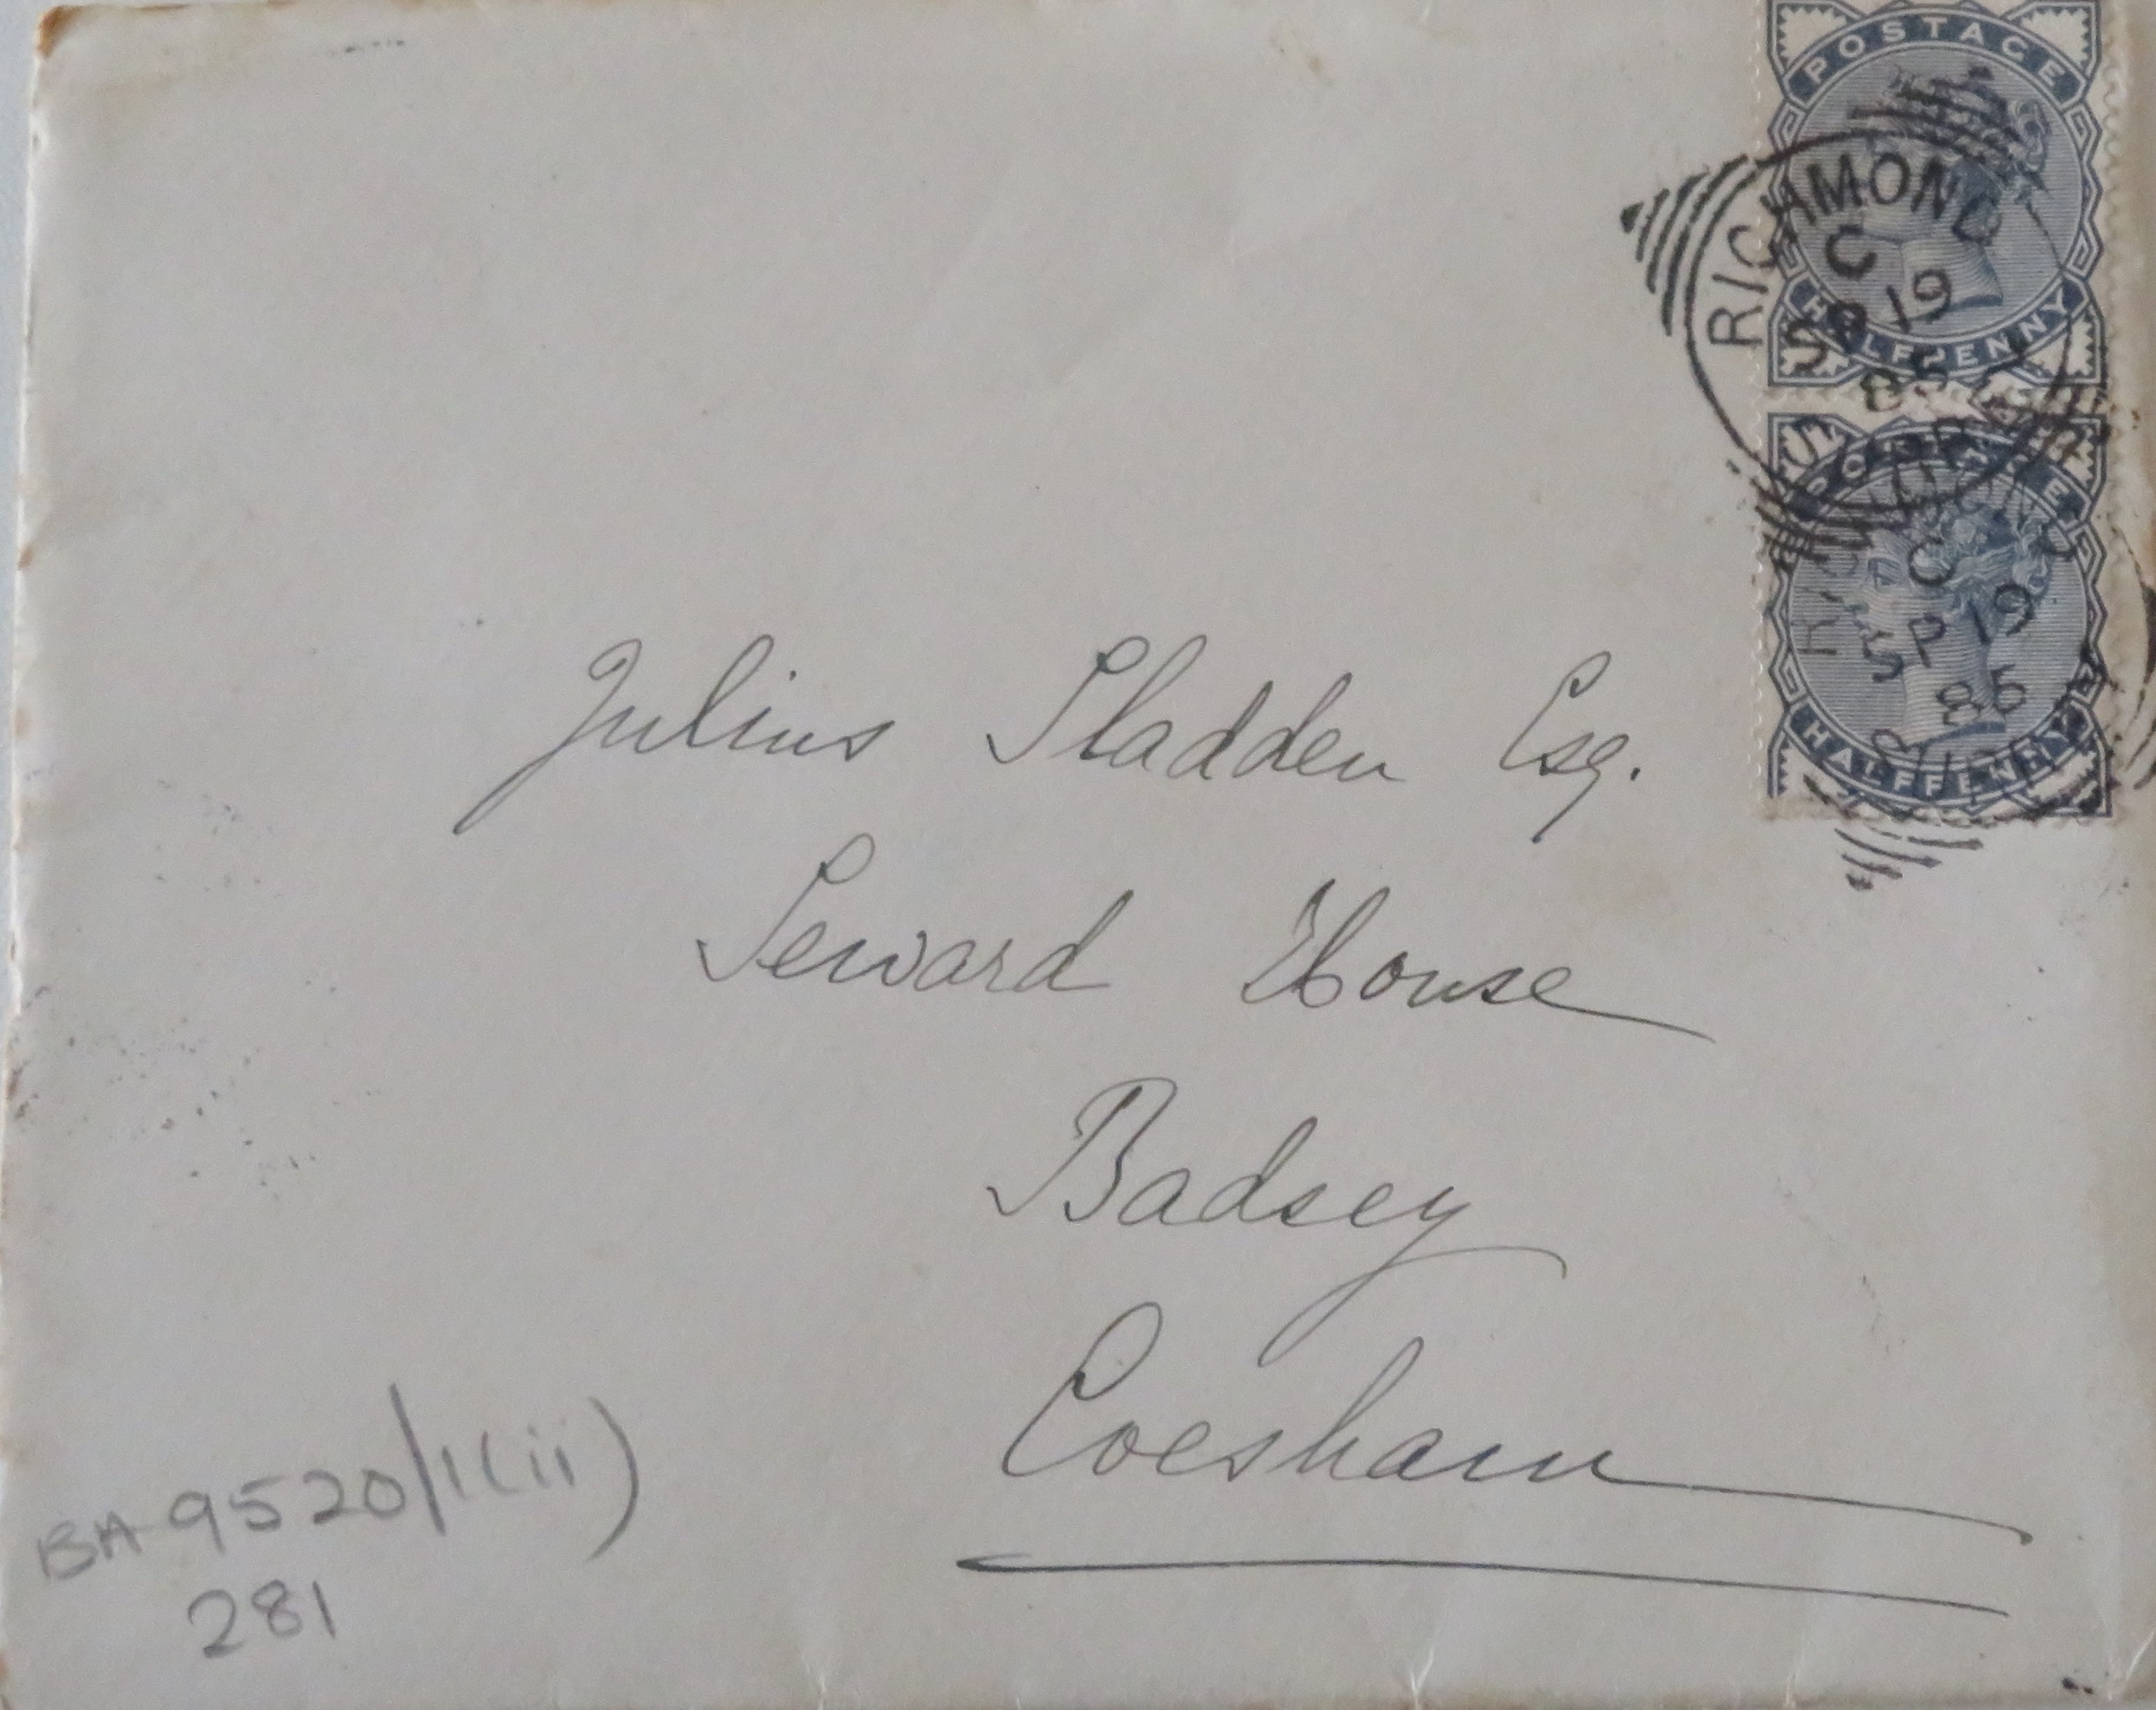 POSTAGE
HALFPENNY
RICHMOND
C
SP 19
85
POSTAGE
HALFPENNY
RICHMOND
C
SP 19
85
Julius Sladden Esq.
Seward House
Badsey
Evesham
BA 9520/1(ii)
281